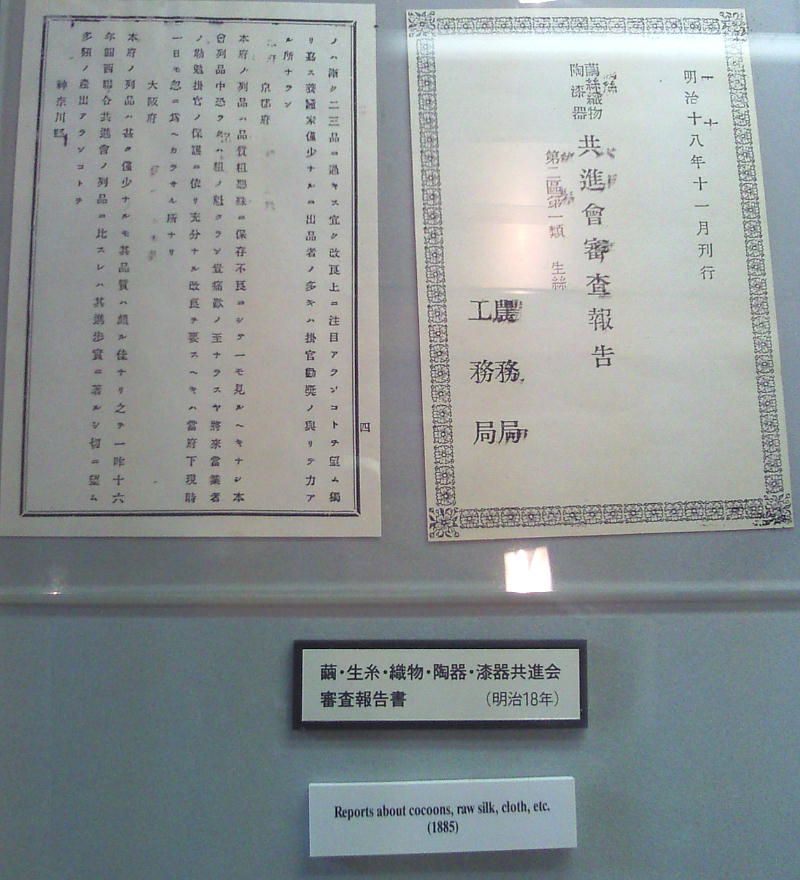 明治十八年十一月刊行
繭絲織物
陶漆器
共進會審査報告
第二區第一類 生絲
農務局
工務局
四
ノハ漸ク二三品ニ過キス宜ク改良上ニ注目アランコトヲ望ム獨
リ嘉ス養蠶家僅少ナルニ出品者ノ多キハ掛官勸奬ノ與リテ力ア
ル所ナラン
京都府
本府ノ列品ハ品質粗惡絲ニ保存不良ニシテ一モ見ルヘキナシ本
會列品中恐ラクハ粗ノ魁タラン豈痛歎ノ至ナラスヤ將來當業者
ノ勤勉掛官ノ保護ニ依リ充分ナル改良ヲ要スヘキハ當府下現時
一日モ忽ニ爲ヘカラサル所ナリ
大阪府
本府ノ列品ハ甚タ僅少ナルモ其品質ハ頗ル佳ナリ之ヲ一昨十六
年關西聯合共進會ノ列品ニ比スレハ其進歩實ニ著ルシ切ニ望ム
多額ノ產出アランコトヲ
神奈川縣
繭・生糸・織物・陶器・漆器共進会
審査報告書 (明治18年)
Reports about cocoons, raw silk, cloth, etc.
(1885)